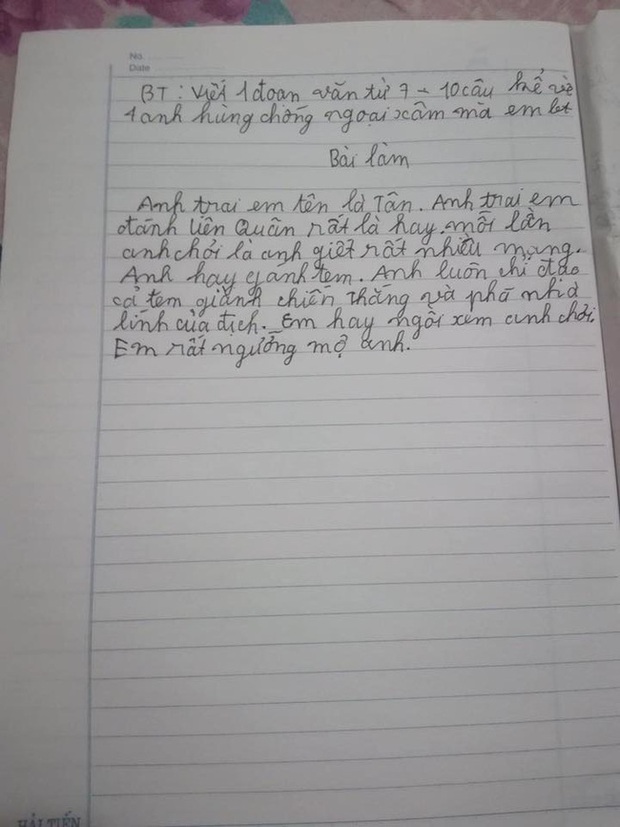 No.
Date
BT: Viết 1 đoạn văn từ 7 - 10 câu kể về
1 anh hùng chống ngoại xâm mà em bet
Bài làm
Anh trai em tên là Tân. Anh trai em
đánh Liên Quân rất là hay. mỗi lần
anh chơi là anh giết rất nhiều mạng.
Anh hay ganh tem. Anh luôn chỉ đạo
cả tem giành chiến thắng và phá nhà
lính của địch. Em hay ngồi xem anh chơi.
Em rất ngưỡng mộ anh.
HẢI TIẾN